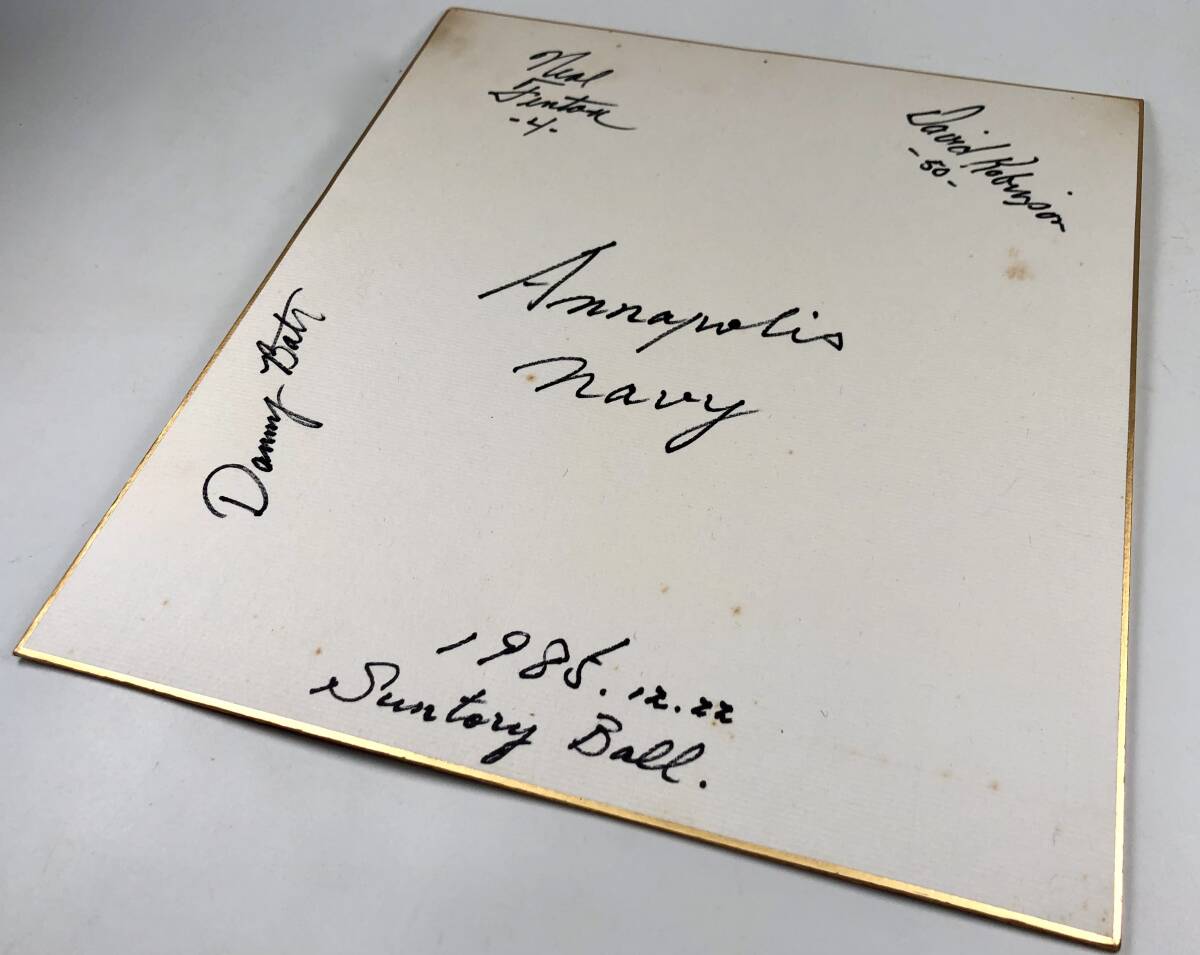 Neal
Fenton
-4-
David Robinson
-50-
Annapolis
Navy
Danny
1985.12.22
Suntory Ball.